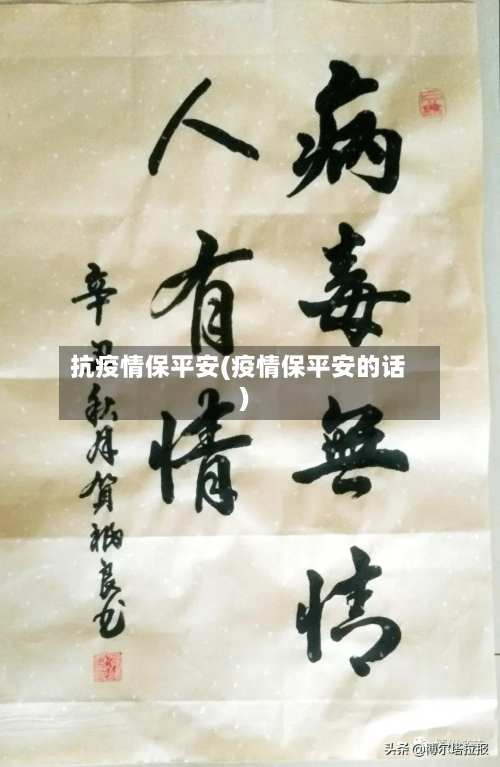 病毒無情
人有情
辛丑秋月賀
良书
抗疫情保平安(疫情保平安的话
)
头条 @博尔塔拉报